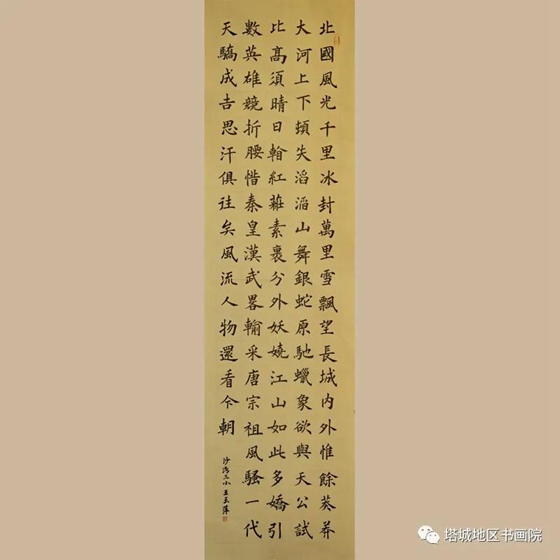 北國風光千里冰封萬里雪飄望長城内外惟餘莽莽
大河上下頓失滔滔山舞銀蛇原馳蠟象欲與天公試
比高須晴日翰紅素裹分外妖嬈江山如此多嬌引
數英雄競折腰惜秦皇漢武畧輸采唐宗祖風騷一代
天驕成吉思汗俱往矣風流人物還看今朝
沙湾三小王玉萍
塔城地区书画院